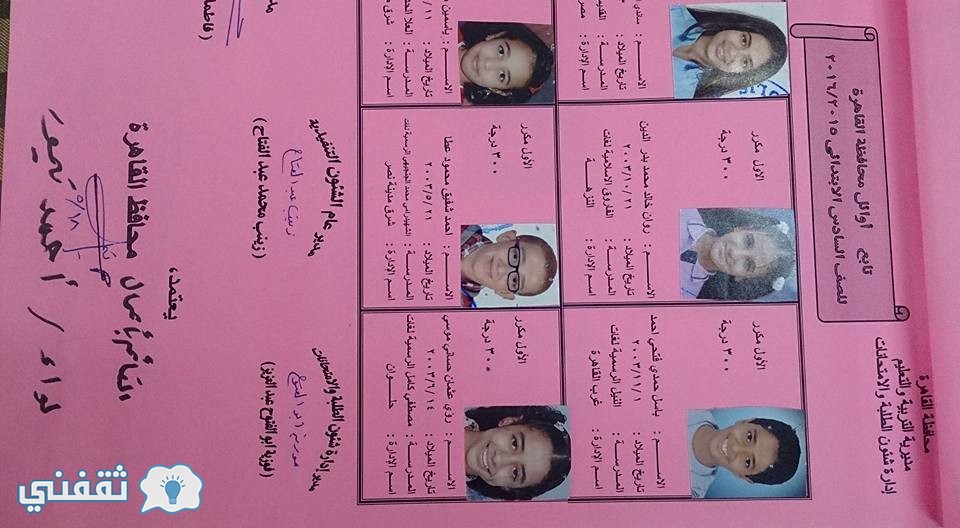 محافظة القاهرة
مديرية التربية والتعليم
إدارة شئون الطلبة والامتحانات
تابع أوائل محافظة القاهرة
للصف السادس الابتدائى ٢٠١٦/٢٠١٥
الأول مكرر
٣٠٠ درجة
الاســـم : باسل حمدي فتحي احمد
تاريخ الميلاد : ٢٠٠٣/١١/١
المدرسة : النيل الرسمية لغات
اسم الإدارة : غرب القاهرة
الأول مكرر
٣٠٠ درجة
الاســـم : روان خالد محمد بدر الدين
تاريخ الميلاد : ٢٠٠٣/١٠/٢١
المدرسة : الفاروق الاسلامية لغات
اسم الإدارة : النزهـــة
الاســـم :
تاريخ الميلاد :
المدرسة :
اسم الإدارة : مصر
الأول مكرر
٣٠٠ درجة
الاســـم : روي عثمان حساني موسي
تاريخ الميلاد : ٢٠٠٣/٦/١٤
المدرسة : مصطفي كامل الرسمية لغات
اسم الإدارة : حلـــوان
الأول مكرر
٣٠٠ درجة
الاســـم : احمد شفيق محمود عطا
تاريخ الميلاد : ٢٠٠٣/٥/٢١
المدرسة : الرسمية لغات
اسم الإدارة : شرق مدينة نصر
الاســـم : ياسمين
تاريخ الميلاد : /١١
المدرسة :
اسم الإدارة : شرق
مدير إدارة شئون الطلبة والامتحانات
(فوزية ابو الفتوح عبد العزيز)
مدير عام الشئون التنفيذية
زينب عبد الفتاح
(زينب محمد عبد الفتاح)
(فاطمة
يعتمد،
القائم بأعمال محافظ القاهرة
لواء / أحمد تيمور
ثقفني